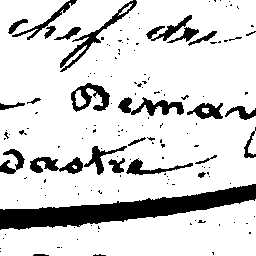 chef du
Deman
dastre